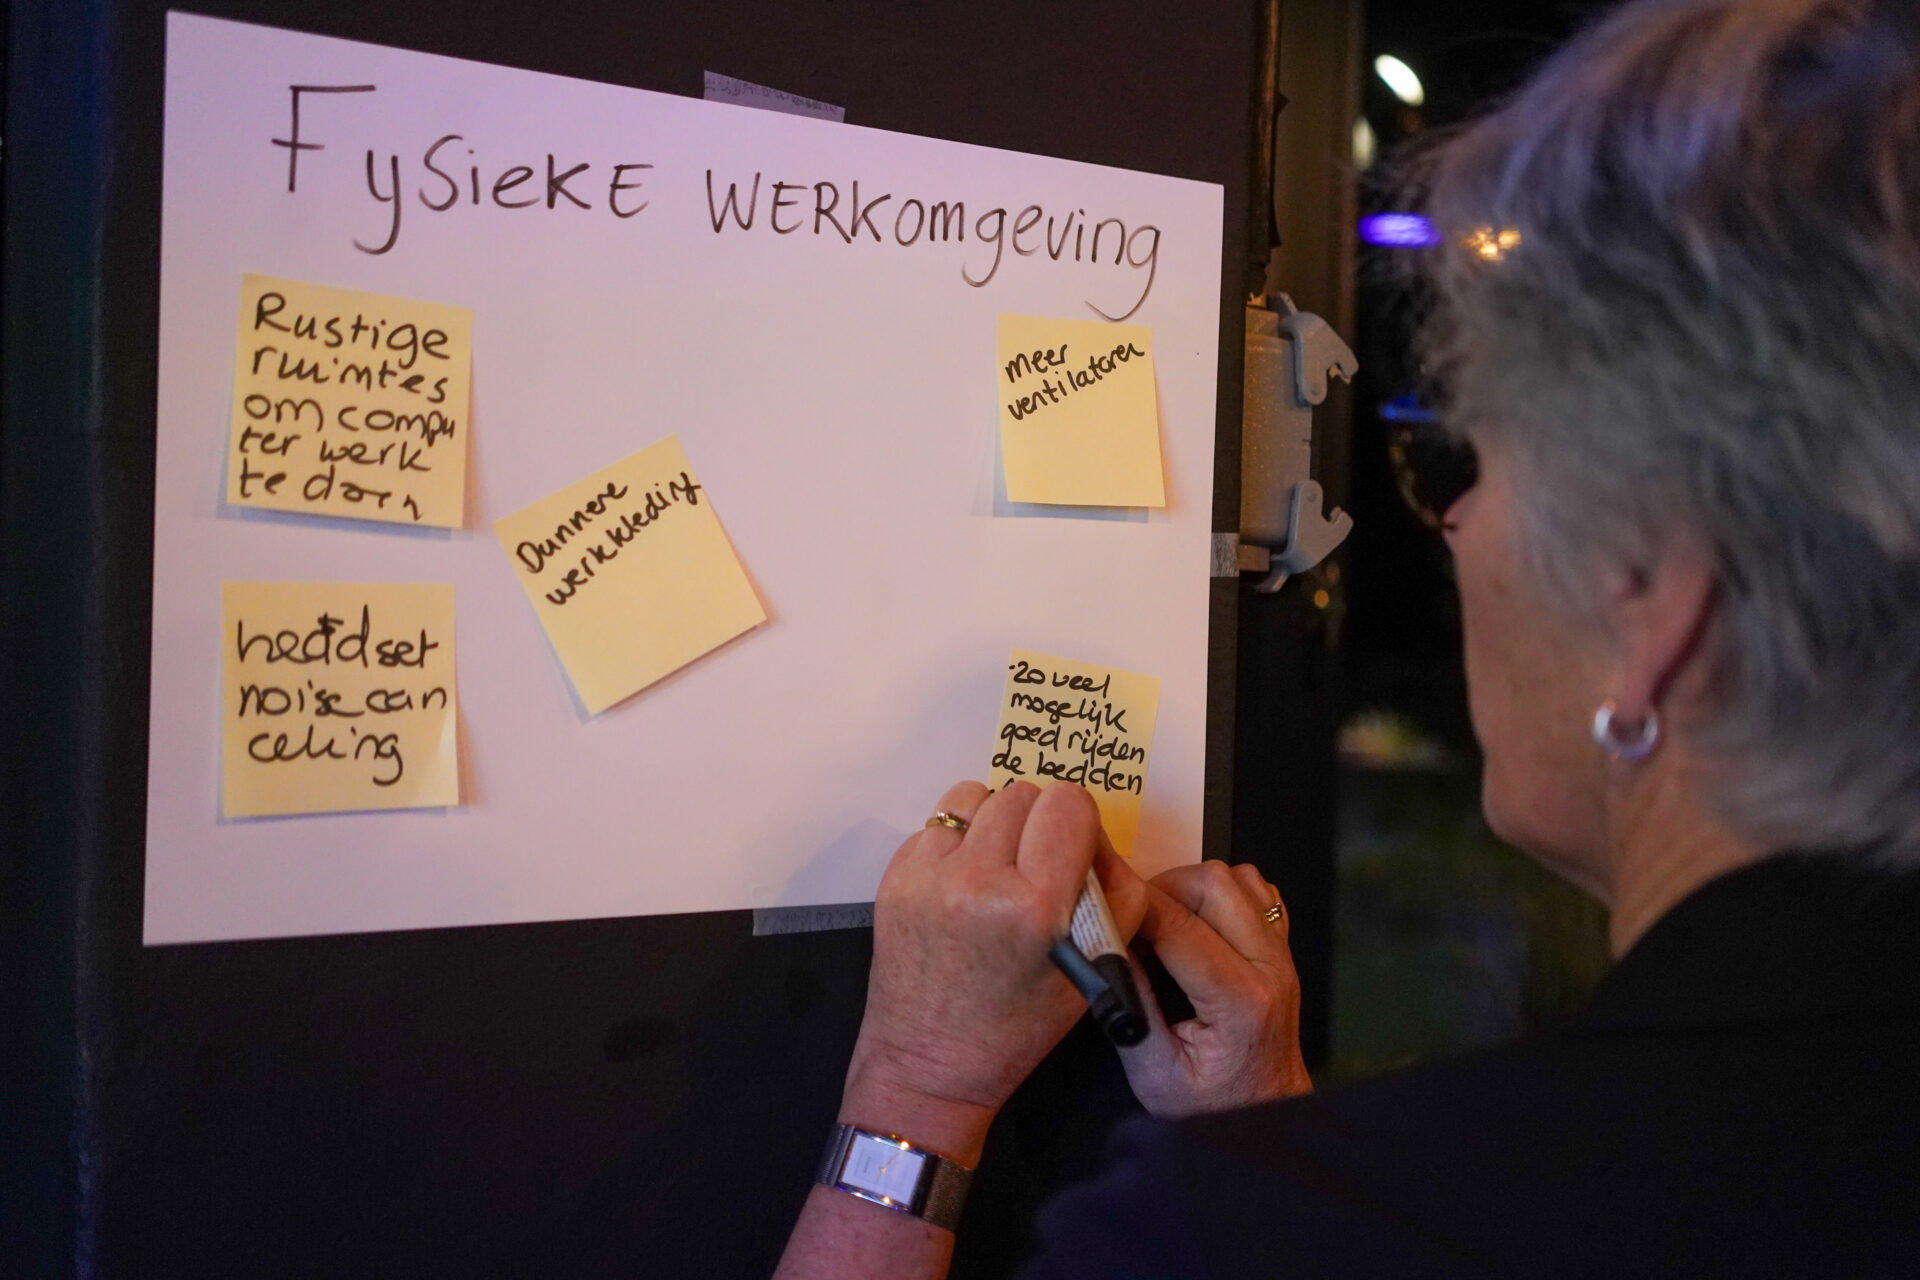 Fysieke werkomgeving
Rustige
ruimtes
om compu
ter werk
te doen
headset
noise can
celing
Dunnere
werkkleding
meer
ventilatoren
- zoveel
mogelijk
goed rijden
de bedden